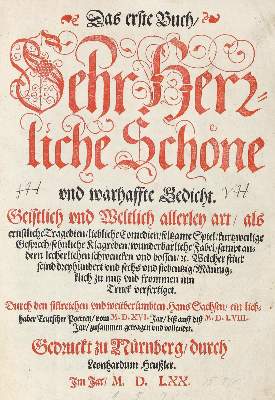 Das erste Buch/
Sehr Herꝛ-
liche Schöne
vnd warhaffte Gedicht.
Geistlich vnd Weltlich allerley art/ als
ernstliche Tragedien/ liebliche Comedien/ seltzame Spiel/ kurtzweilige
Gesprech/ sehnliche Klagreden/ wunderbarliche Fabel/ sampt an-
dern lecherlichen schwencken vnd bossen/ ꝛc. Welcher stück
seind dreyhundert vnd sechs vnd siebentzig/ Männig-
klich zu nutz vnd frommen inn
Truck verfertiget.
Durch den sinreichen vnd weitberümbten Hans Sachsen/ ein lieb-
haber Teutscher Poeterey/ vom M.D.XVI. Jar/ biß auff diß M.D.LVIII.
Jar/ zusammen getragen vnd vollendet.
Gedruckt zu Nürnberg/ durch
Leonhardum Heußler.
Im Jar/ M. D. LXX.